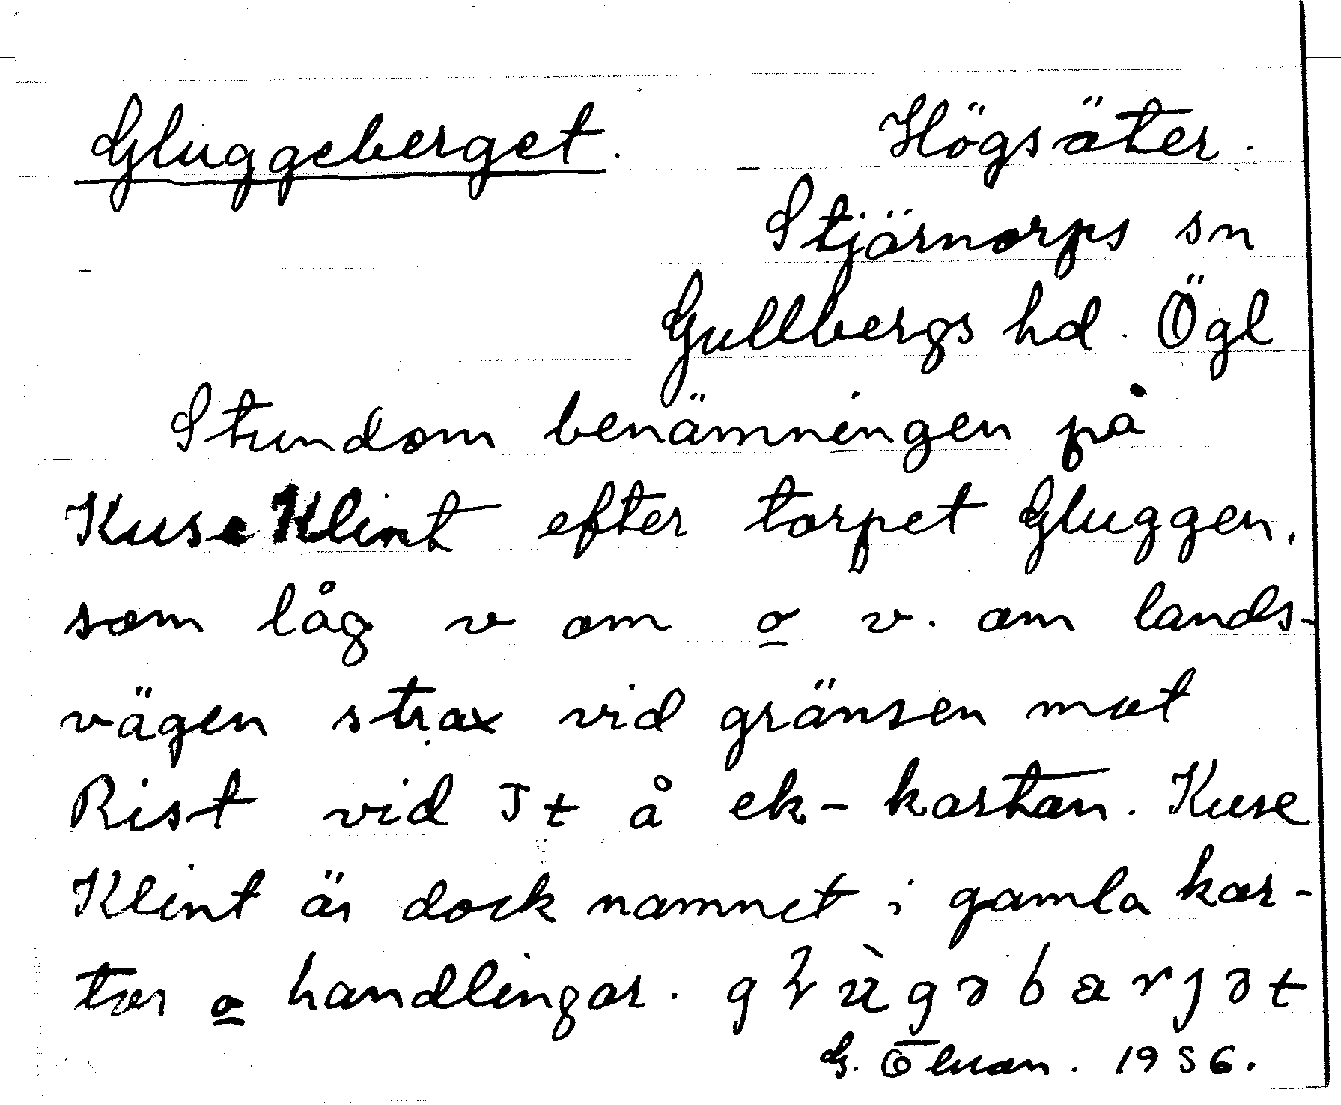 Gluggeberget. Högsäter.
Stjärnorps sn
Gullbergs hd. Ögl
Stundom benämningen på
Kuse Klint efter torpet Gluggen,
som låg v om o v. om lands-
vägen strax vid gränsen mot
Rist vid Jt å ek-kartan. Kuse
Klint är dock namnet i gamla kar-
tor o handlingar.
G. 1936.